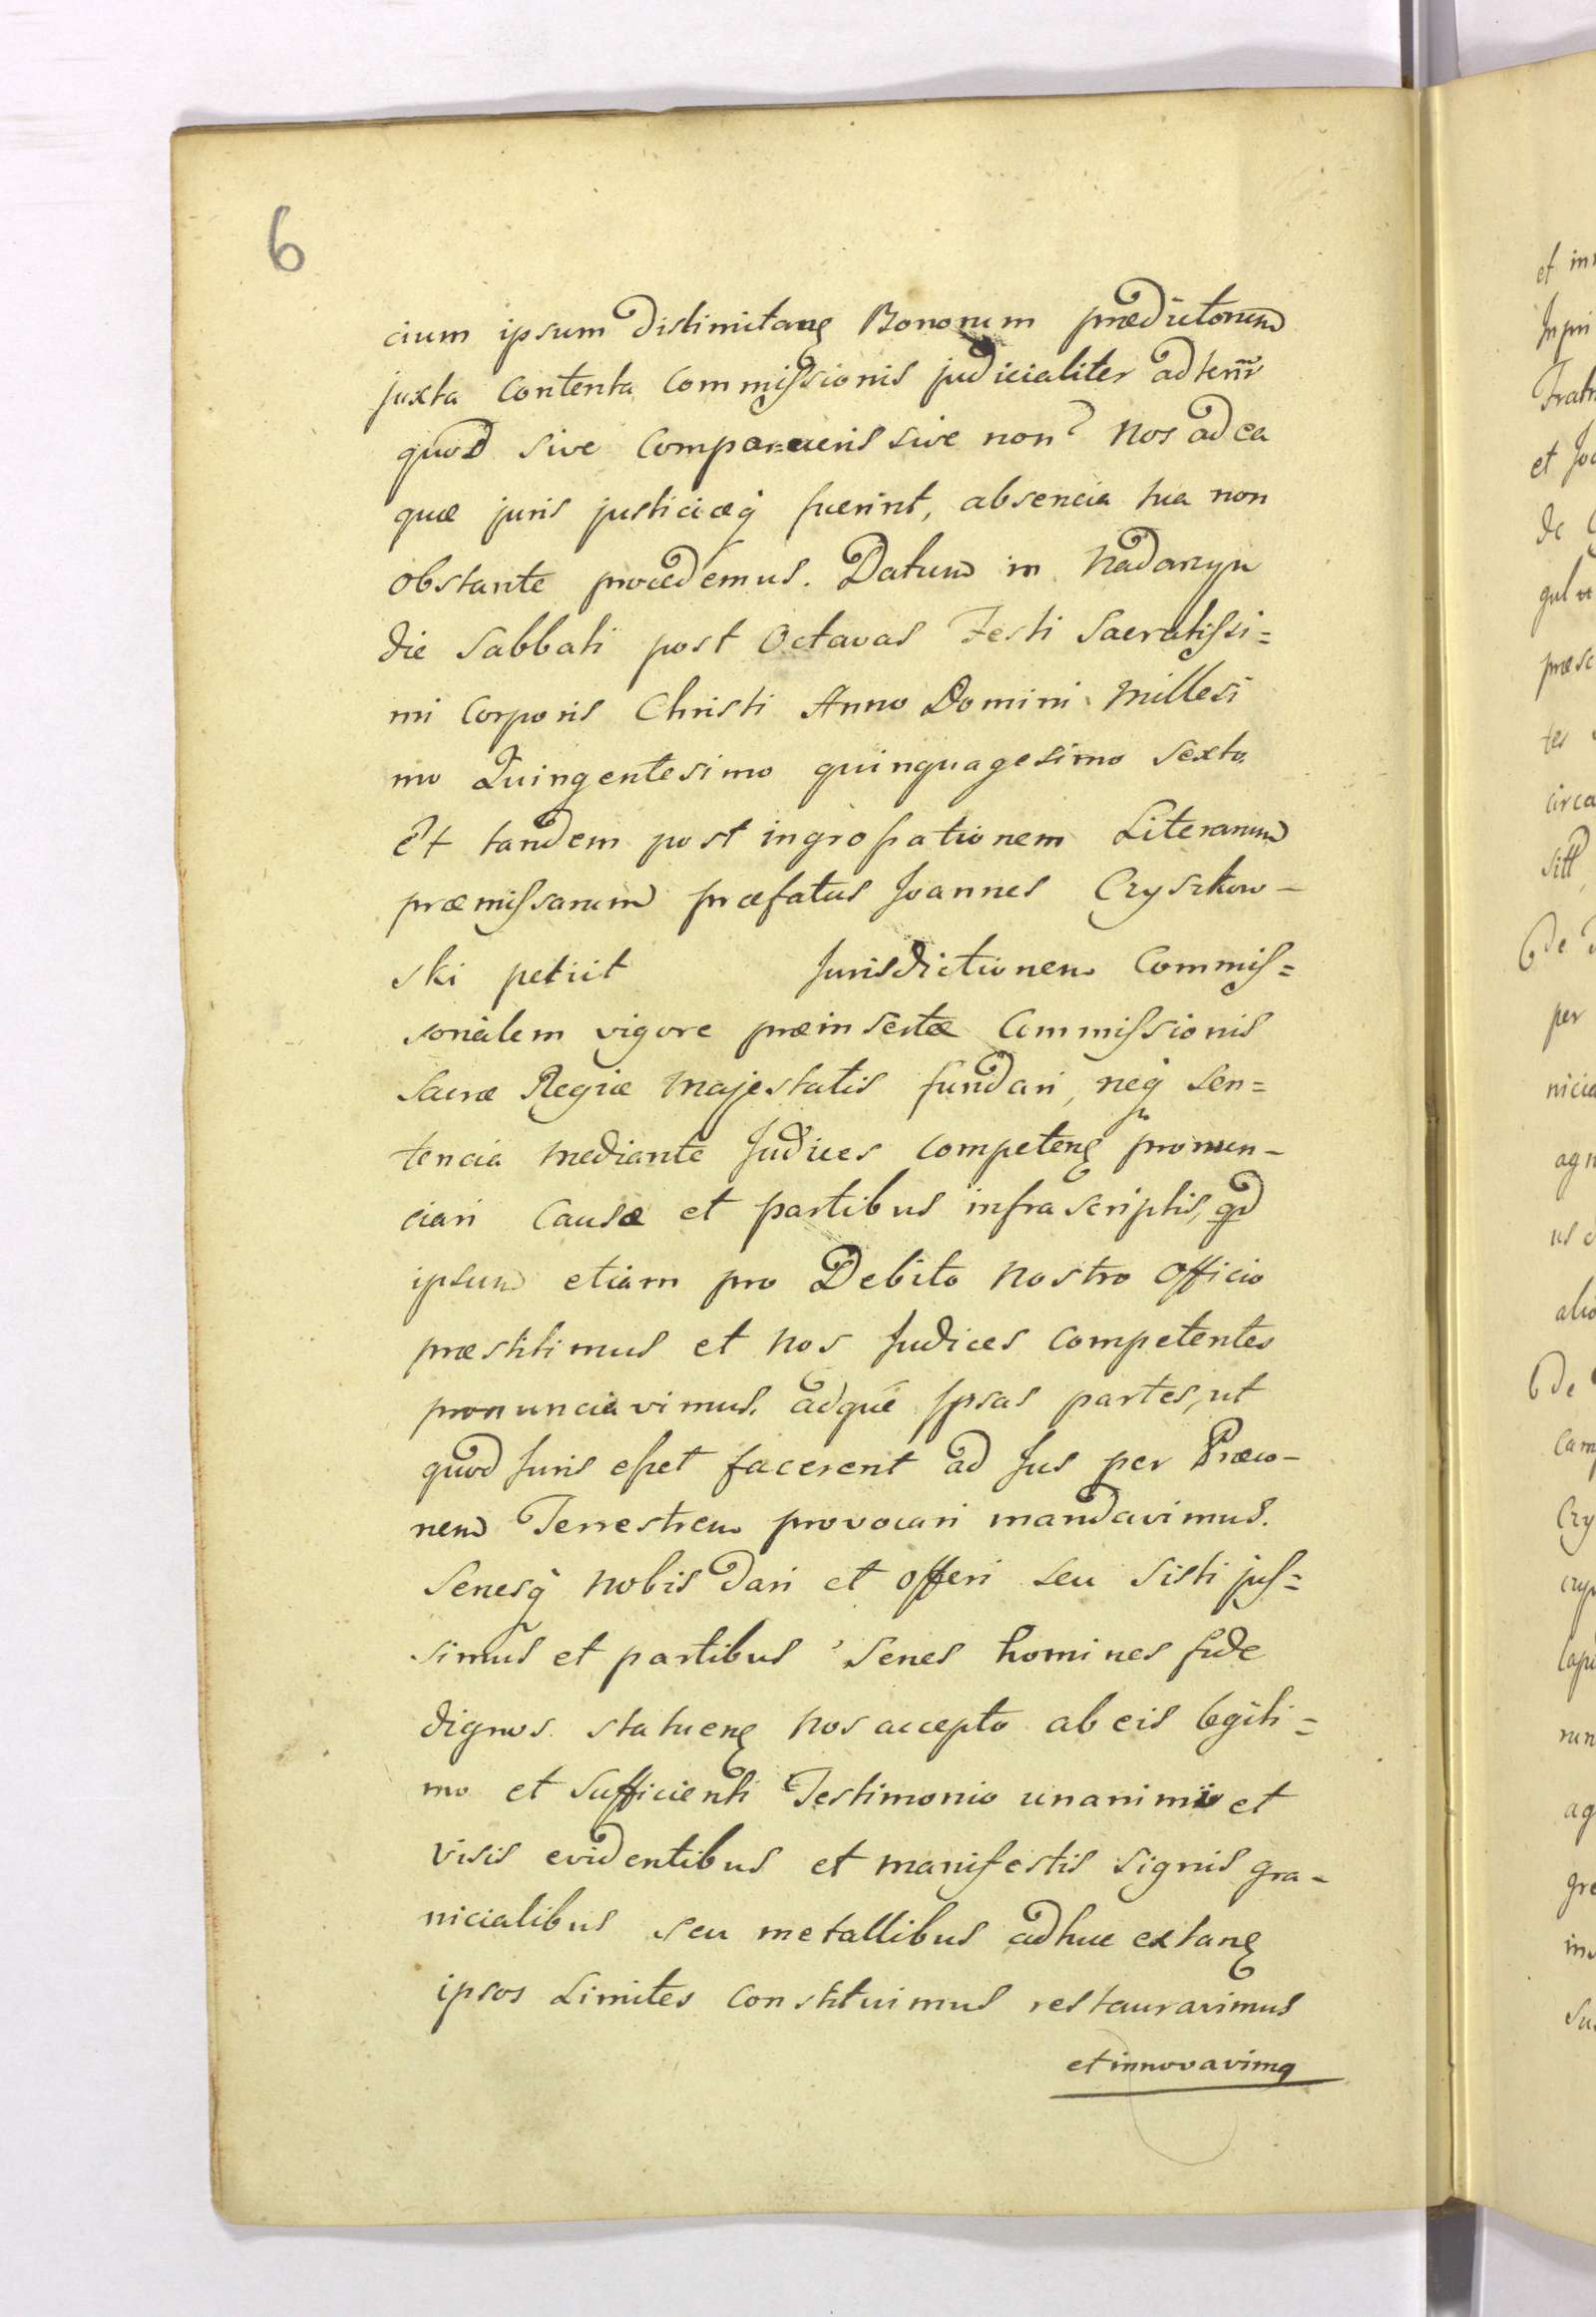 6
cium ipsum distimitanę Bonorum prædictorum
juxta Contenta Commissionis judicialiter ad term̃
quod sive Compar=ueris sive non? Nos ad ea
quæ juris justiciæq̨ fuerint, absencia tua non
obstante procedemus. Datum in Nadaryn
die Sabbati post Octavas Festi Sacratissi=
mi Corporis Christi Anno Domini Millesi
mo Quingentesimo quinquagesimo Sexto
et tandem post ingrossationem Literarum
præmissarum præfatus Joannes Czyszkow-
ski petiit Jurisdictionem Commis=
sorialem vigore præinsertæ Commissionis
Sacræ Regiæ Majestatis fundari, neq̨ Sen=
tencia mediante Judices competenę pronun-
ciari Causæ et partibus infrascriptis, qd
ipsum etiam pro Debito nostro officio
præstitimus et nos Judices Competentes
pronunciavimus. adque Ipsas partes, ut
quod Juris esset facerent ad Jus per Præco-
nem Terrestrem provocari mandavimus.
Senesq̨ nobis dari et offeri seu sisti jus=
simus et partibus Senes homines fide
dignos statuenę Nos accepto ab eis legiti=
mo et Sufficienti Testimonio unanimio et
visis evidentibus et manifestis signis gra-
nicialibus seu metallibus adhuc extanę
ipsos Limites Constituimus restauravimus
et innovavimq